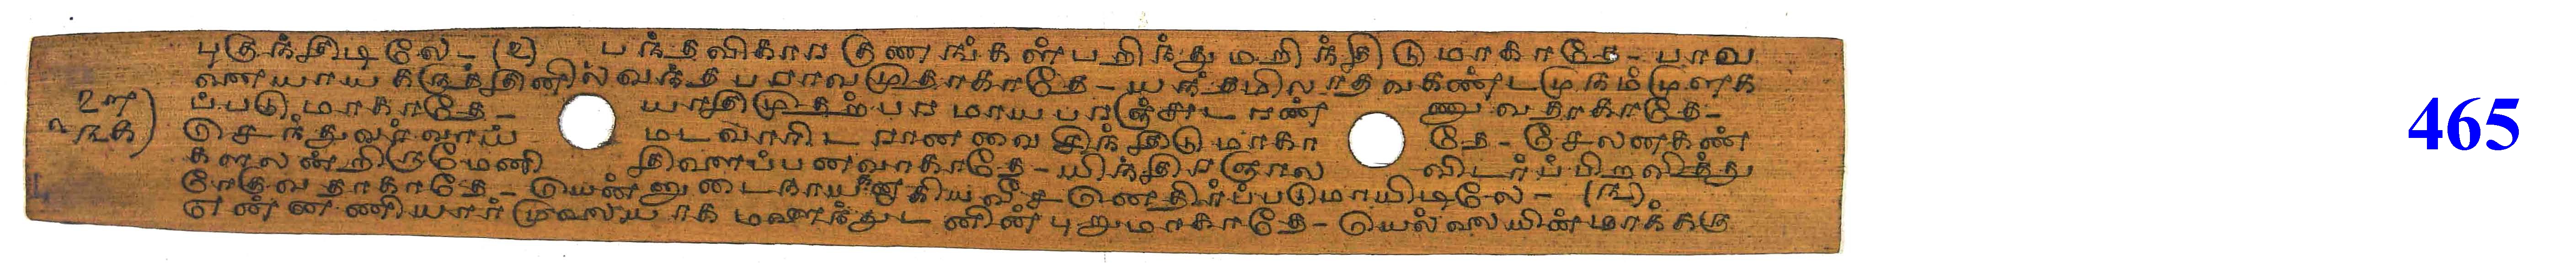 புகுந்திடிலே - (உ) பந்தவிகார குணங்கள் பறிந்து மறிந்திடு மாகாதே - பாவ
ணையாய கருத்தினில் வந்த பராவமுதாகாதே - யந்தமிலாத வகண்டமு நம்முளக
ப்படு மாகாதே - யாதிமுதற் பரமாய பரஞ்சுடரண் ணுவதாகாதே -
செந்துவர் வாய் மடவாரிடரானவை சிந்திடு மாகா தே - சேலனகண்
களவன்றிருமேனி திளைப்பனவாகாதே - யிந்திர ஞால விடர்ப் பிறவித்து
ரேகுவ தாகாதே - யென்னுடைநாயகனாகியவீச னெதிர்ப்படுமாயிடிலே - (ங)
என்னணியார் முலையாக மளைந்துட னின்புறுமாகாதே - யெல்லையின்மாக்கரு
465